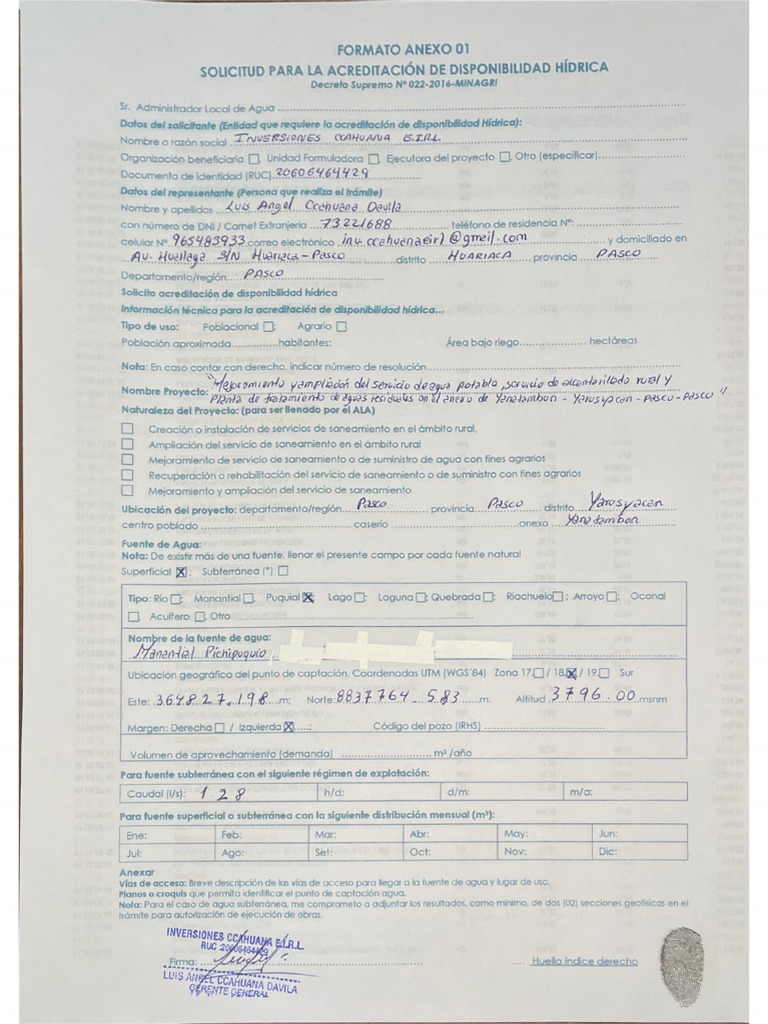 FORMATO ANEXO 01
SOLICITUD PARA LA ACREDITACIÓN DE DISPONIBILIDAD HÍDRICA
Decreto Supremo Nº 022-2016-MINAGRI
Sr. Administrador Local de Agua
Datos del solicitante (Entidad que requiere la acreditación de disponibilidad Hídrica):
Nombre o razón social INVERSIONES CCAHUANA E.I.RL.
Organización beneficiaria ☐, Unidad Formuladora ☐, Ejecutora del proyecto ☐, Otro (especificar)
Documento de Identidad (RUC) 20606464429
Datos del representante (Persona que realiza el trámite)
Nombre y apellidos Luis Angel Ccahuana Davila
con número de DNI / Carnet Extranjería 73221688 teléfono de residencia Nº:
celular Nº 965483933 correo electrónico inv.ccahuanaeirl@gmail.com y domiciliado en
Av. Huallaga S/N Huariaca-Pasco distrito HUARIACA provincia PASCO
Departamento/región. PASCO
Solicito acreditación de disponibilidad hídrica
Información técnica para la acreditación de disponibilidad hídrica...
Tipo de uso: Poblacional ☐; Agrario ☐
Población aproximada habitantes: Área bajo riego hectáreas
Nota: En caso contar con derecho, indicar número de resolución
"Mejoramiento y ampliación del servicio de agua potable, servicio de alcantarillado rural y
Nombre Proyecto: Planta de tratamiento de aguas residuales en el anexo de Yanatambon - Yarusyacan - Pasco - Pasco"
Naturaleza del Proyecto: (para ser llenado por el ALA)
☐ Creación o instalación de servicios de saneamiento en el ámbito rural,
☐ Ampliación del servicio de saneamiento en el ámbito rural
☐ Mejoramiento de servicio de saneamiento o de suministro de agua con fines agrarios
☐ Recuperación o rehabilitación del servicio de saneamiento o de suministro con fines agrarios
☐ Mejoramiento y ampliación del servicio de saneamiento
Ubicación del proyecto: departamento/región Pasco provincia Pasco distrito Yarusyacan
centro poblado caserío anexo Yanatambon
Fuente de Agua:
Nota: De existir más de una fuente, llenar el presente campo por cada fuente natural
Superficial ☒. Subterránea (*) ☐
Tipo: Río ☐; Manantial ☐, Puquial ☒, Lago ☐; Laguna ☐; Quebrada ☐; Riachuelo ☐; Arroyo ☐; Oconal
☐, Acuífero ☐, Otro
Nombre de la fuente de agua:
Manantial Pichipuquio
Ubicación geográfica del punto de captación. Coordenadas UTM (WGS'84) Zona 17 ☐ / 18 ☒ / 19 ☐ Sur
Este: 364827.198 m; Norte: 8837764.583 m. Altitud 3796.00 msnm
Margen: Derecha ☐ / Izquierda ☒ Código del pozo (IRHS)
Volumen de aprovechamiento (demanda) m³/año
Para fuente subterránea con el siguiente régimen de explotación:
Caudal (l/s): 1.28 h/d: d/m: m/a:
Para fuente superficial o subterránea con la siguiente distribución mensual (m³):
Ene: Feb: Mar: Abr: May: Jun:
Jul: Ago: Set: Oct: Nov: Dic:
Anexar
Vías de acceso: Breve descripción de las vías de acceso para llegar a la fuente de agua y lugar de uso.
Planos o croquis que permita identificar el punto de captación agua.
Nota: Para el caso de agua subterránea, me comprometo a adjuntar los resultados, como mínimo, de dos (02) secciones geofísicas en el
trámite para autorización de ejecución de obras.
INVERSIONES CCAHUANA E.I.R.L.
RUC: 20606464429
Firma: Huella índice derecho
LUIS ANGEL CCAHUANA DAVILA
GERENTE GENERAL